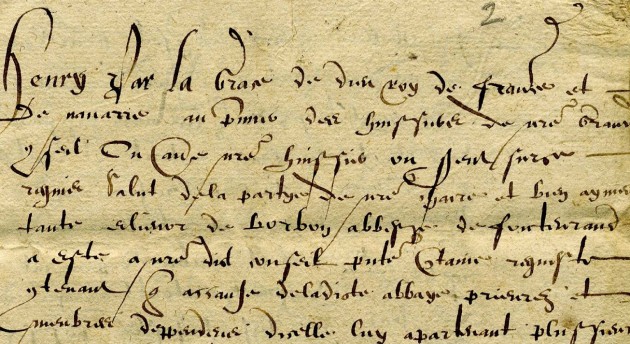 2
Henry par la grace de dieu roy de france et
De navarre au p'mier des huissiers de n're grand
conseil Ou autre n're huissier ou sergent sur ce
requis Salut de la partye de n're chaire et bien aymée
tante elienor de borbon abbesse de fontevraud
a esté a n're dit conseil requeste
contenant a cause de ladicte abbaye prieurez et
menbres deppendens dicelle luy apartenant plussieurs